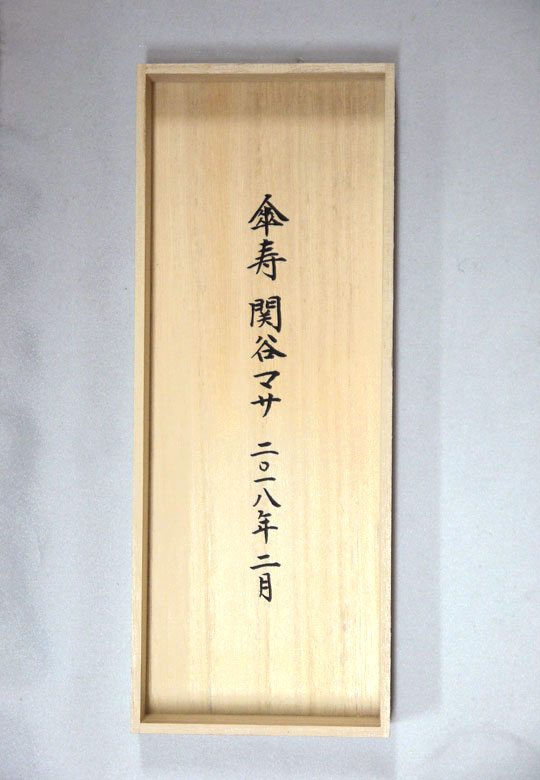 傘寿 関谷マサ 二〇一八年 二月